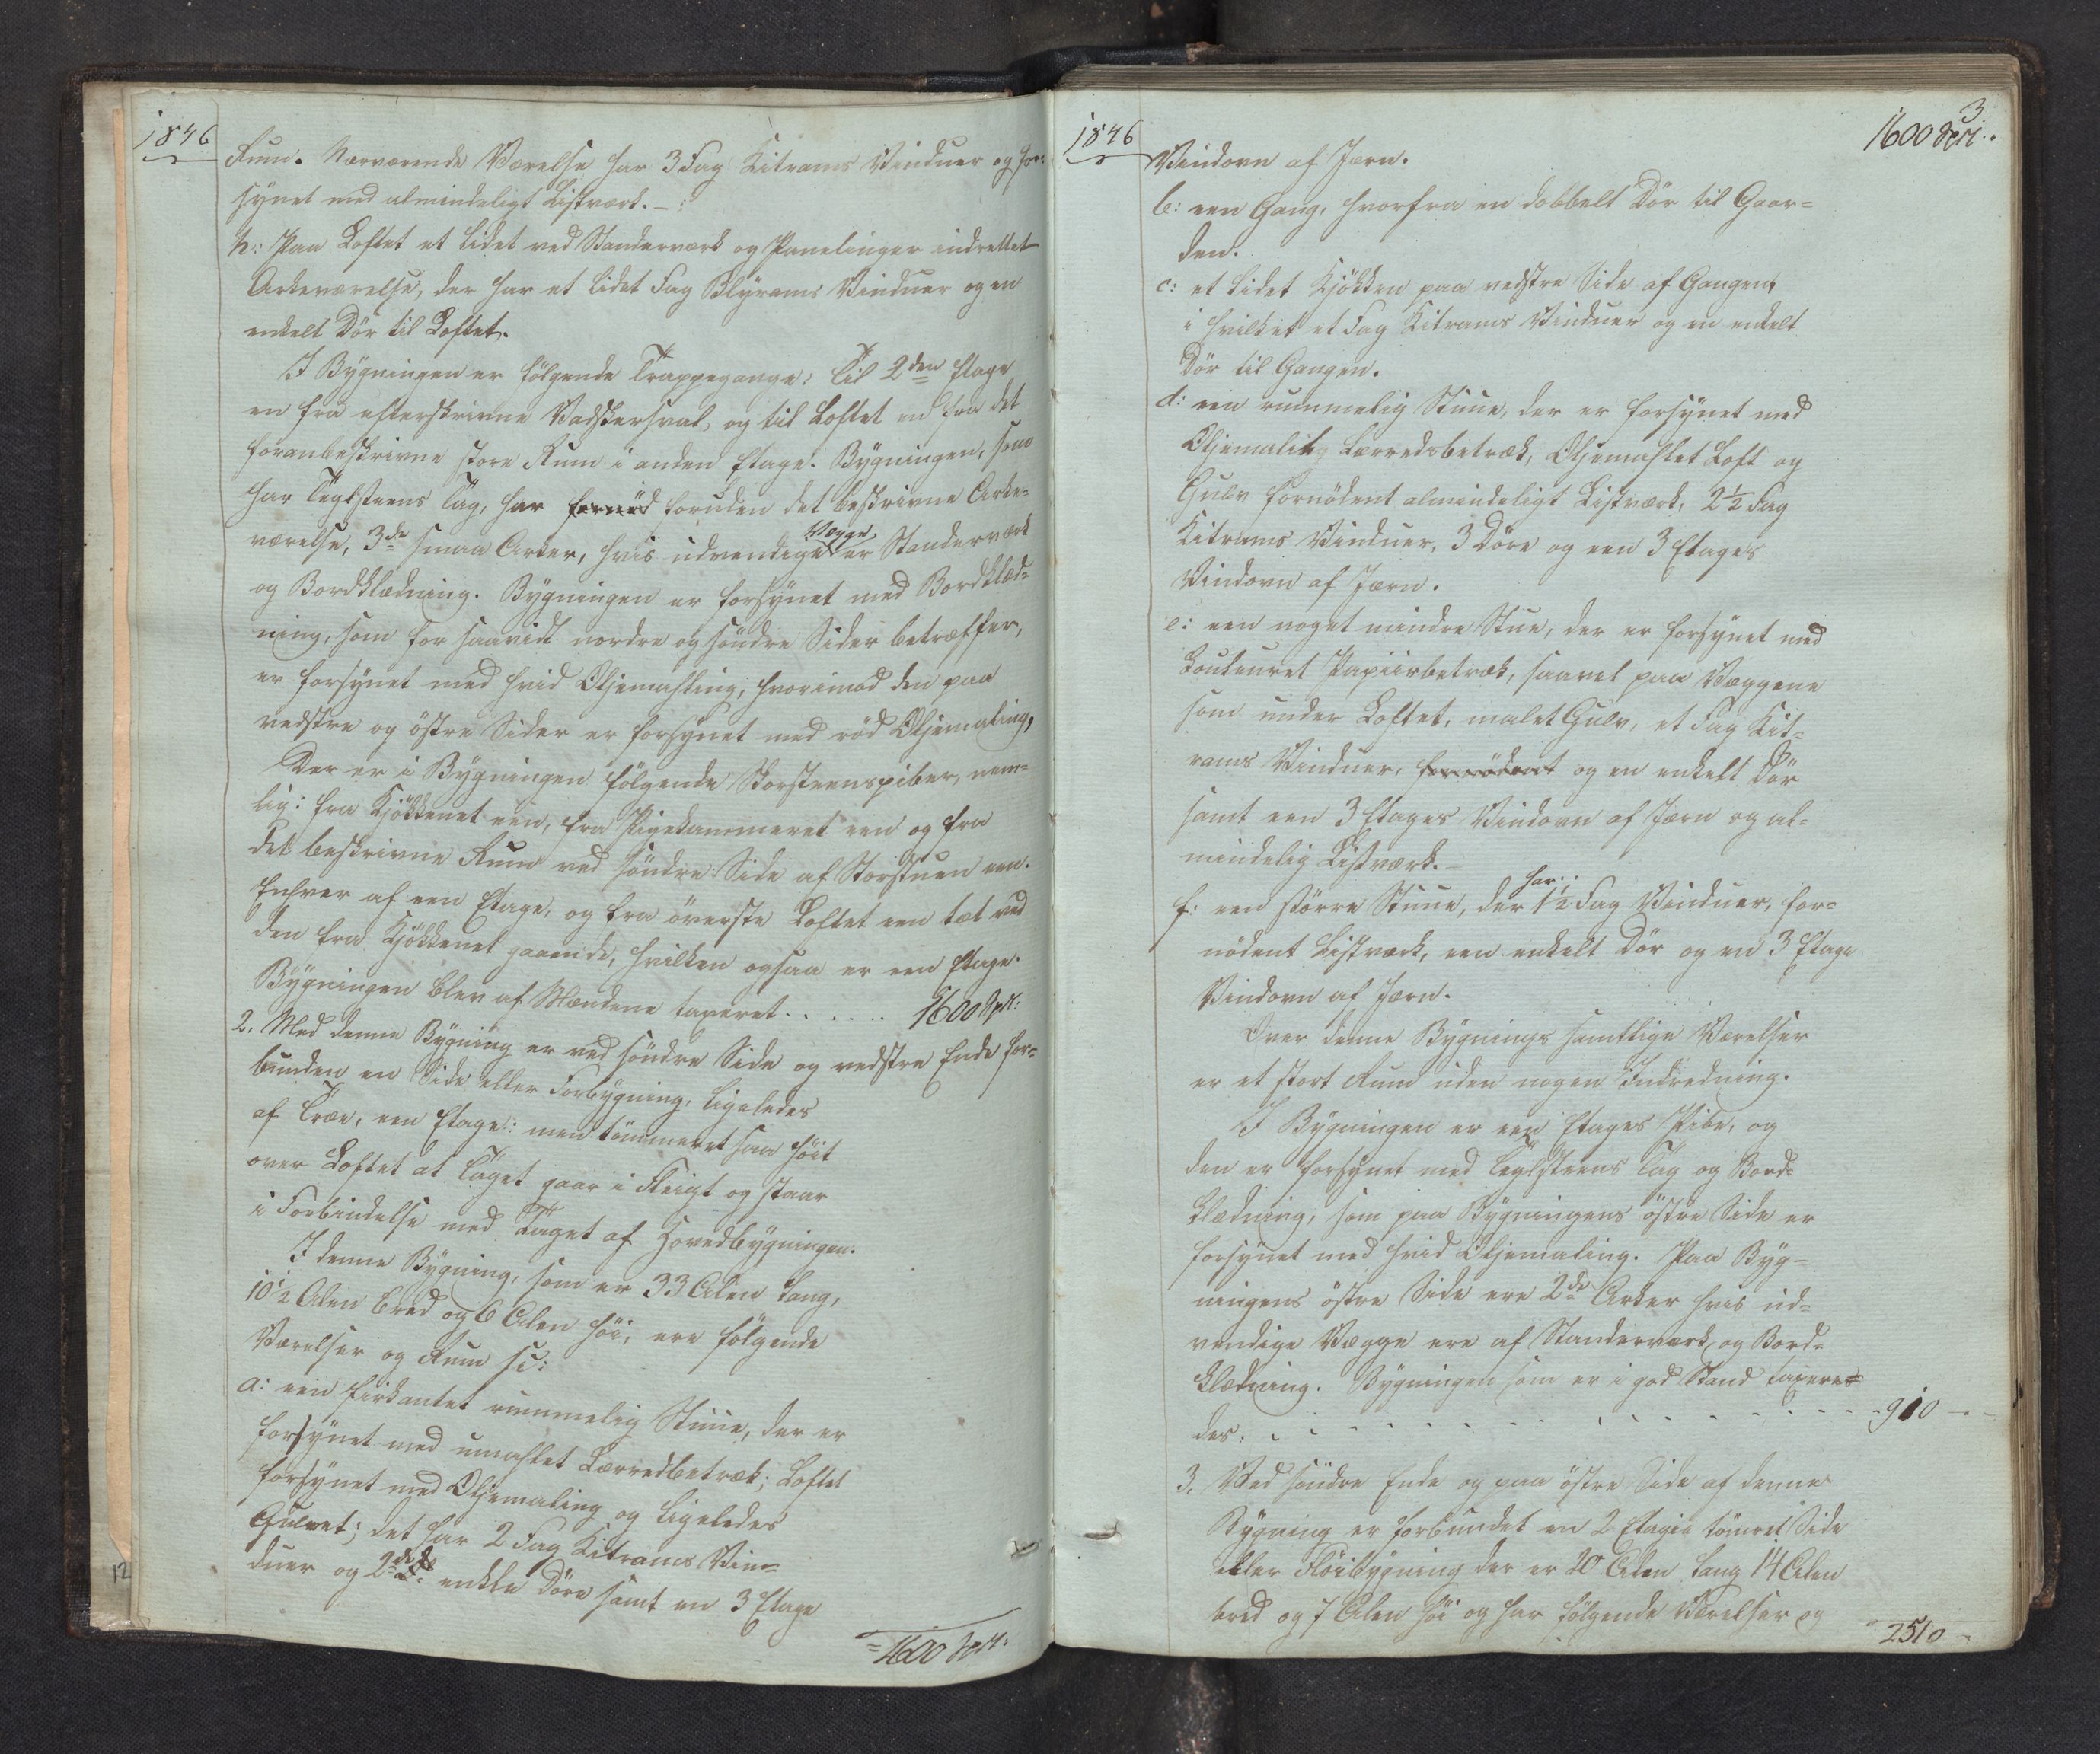 1846
Rum. Nærværende Værelse har 3 Fag Kitrams Vinduer og for=
synet med almindeligt Listværk. –
h: Paa Loftet et lidet ved Standerværk og Panelinger indrettet
Arkeværelse, der har et lidet Fag Blyrams Vinduer og en
enkelt Dör til Loftet.
I Bygningen er fölgende Trappegange: til 2den Etage
en fra efterskrivne Vadskersval, og til Loftet en fra det
foranbeskrivne store Rum i anden Etage. Bygningen, som
har Teglsteens Tag, har foruden det beskrivne Arke=
værelse, 3de smaa Arker, hvis udvendige Vægge er Standerværk
og Bordklædning. Bygningen er forsynet med Bordklæd=
ning, som for saavidt nordre og söndre Sider betræffer,
er forsynet med hvid Oljemahling, hvorimod den paa
vestre og östre Sider er forsynet med röd Oljemaling,
Der er i Bygningen fölgende Skorsteenspiber, nem=
lig: fra Kjökkenet een, fra Pigekammeret een og fra
det beskrivne Rum ved söndre Side af Storstuen een.
Enhver af een Etage, og fra överste Loftet een tæt ved
den fra Kjökkenet gaaende, hvilken ogsaa er een Etage.
Bygningen blev af Mændene taxeret . . . . . . 1600 Spd:
2. Med denne Bygning er ved söndre Side og vestre Ende for=
bunden en Side eller Forbygning, ligeledes
af Træe, een Etage: men tömmeret saa höit
over Loftet at Taget gaar i Fleigt og staar
i Forbindelse med Taget af Hovedbygningen.
I denne Bygning, som er 33 Alen lang,
10½ Alen bred og 6 Alen höi, ere fölgende
Værelser og Rum sc:
a: een firkantet rummelig Stuue, der er
forsynet med umahlet Lærredbetræk; Loftet
forsynet med Oljemaling og ligeledes
Gulvet; det har 2 Fag Kitrams Vin=
duer og 2de enkle Döre samt en 3 Etage
= 1600 Spd:
12
3.
1846
1600 Spd:
Vindovn af Jærn.
b: een Gang, hvorfra en dobbelt Dör til Gaar=
den.
c: et lidet Kjökken paa vestre Side af Gangen
i hvilket et Fag Kitrams Vinduer og en enkelt
Dör til Gangen.
d: een rummelig Stuue, der er forsynet med
Oljemalet Lærredsbetræk, Oljemahlet Loft og
Gulv fornödent almindeligt Listværk, 2½ Fag
Kitrams Vinduer, 3 Döre og een 3 Etages
Vindovn af Jærn.
e: een noget mindre Stue, der er forsynet med
Couleuret Papiirbetræk, saavel paa Væggene
som under Loftet, malet Gulv, et Fag Kit=
rams Vinduer, fornödent og en enkelt Dör
samt een 3 Etages Vindovn af Jærn og al=
mindelig Listværk. –
f: een större Stuue, der har 1½ Fag Vinduer, for=
nödent Listværk, een enkelt Dör og en 3 Etage
Vindovn af Jærn.
Over denne Bygnings samtlige Værelser
er et stort Rum uden nogen Indredning.
I Bygningen er een Etages Pibe, og
den er forsynet med Teglsteens Tag og Bord=
klædning, som paa Bygningens östre Side er
forsynet med hvid Oljemaling. Paa Byg=
ningens östre Side ere 2de Arker hvis ud=
vendige Vægge ere af Standerværk og Bord=
klædning. Bygningen som er i god Stand taxere=
des: . . . . . . . . . . . . 910 –
3. Ved söndre Ende og paa östre Side af denne
Bygning er forbundet en 2 Etages tömret Side
eller Flöibygning der er 20 Alen lang 14 Alen
bred og 7 Alen höi og har fölgende Værelser og
2510 –